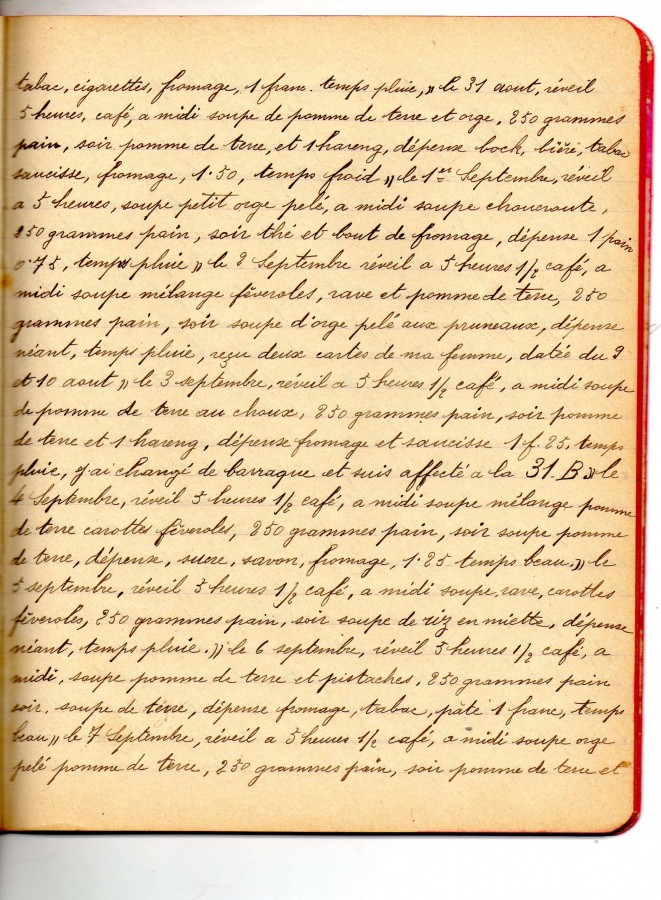 tabac, cigarettes, fromage, 1 franc. temps pluie, » le 31 aout, réveil
5 heures, café, a midi soupe de pomme de terre et orge, 250 grammes
pain, soir pomme de terre, et 1 hareng, dépense bock, bière, tabac
saucisse, fromage, 1.50, temps froid » le 1er Septembre, réveil
a 5 heures, soupe petit orge pelé, a midi soupe choucroute,
250 grammes pain, soir thé et bout de fromage, dépense 1 pain
0.75, temps pluie » le 2 Septembre réveil a 5 heures 1/2 café, a
midi soupe mélange fêveroles, rave et pomme de terre, 250
grammes pain, soir soupe d'orge pelé aux pruneaux, dépense
néant, temps pluie, reçu deux cartes de ma femme, datée du 9
et 10 aout » le 3 septembre, réveil a 5 heures 1/2 café, a midi soupe
de pomme de terre au choux, 250 grammes pain, soir pomme
de terre et 1 hareng, dépense fromage et saucisse 1 f. 25, temps
pluie, j'ai changé de barraque et suis affecté a la 31. B » le
4 Septembre, réveil 5 heures 1/2 café, a midi soupe mélange pomme
de terre carottes fêveroles, 250 grammes pain, soir soupe pomme
de terre, dépense, sucre, savon, fromage, 1.25 temps beau. » le
5 septembre, réveil 5 heures 1/2 café, a midi soupe, rave, carottes
fêveroles, 250 grammes pain, soir soupe de riz en miette, dépense
néant, temps pluie. » le 6 septembre, réveil 5 heures 1/2 café, a
midi, soupe pomme de terre et pistaches, 250 grammes pain
soir, soupe de terre, dépense fromage, tabac, pâté 1 franc, temps
beau » le 7 Septembre, réveil a 5 heures 1/2 café, a midi soupe orge
pelé pomme de terre, 250 grammes pain, soir pomme de terre et